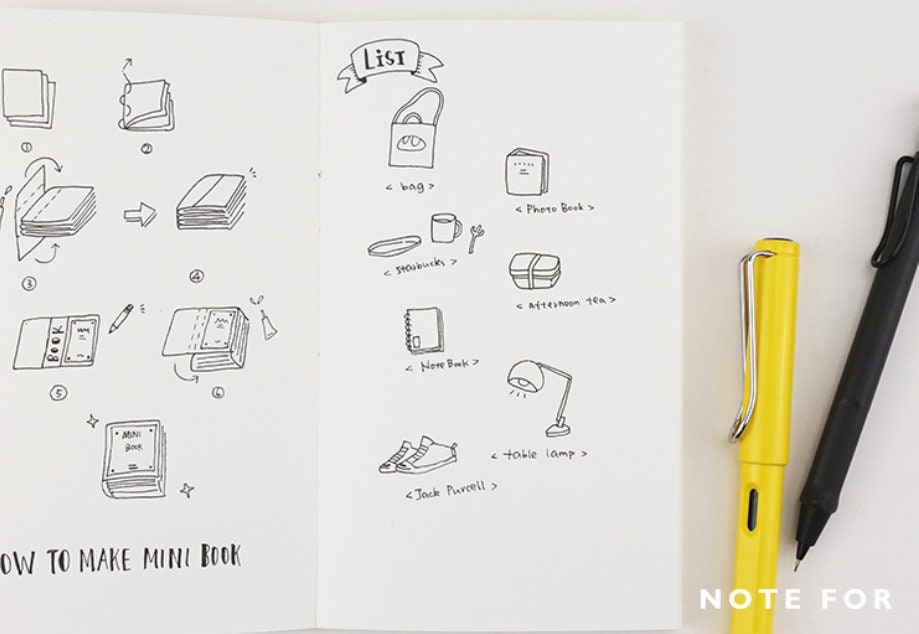 ①
②
③
④
BOOK
⑤
⑥
MINI
BOOK
OW TO MAKE MINI BOOK
LIST
< bag >
< Photo Book >
< Starbucks >
< Afternoon tea >
< NoteBook >
< table lamp >
< Jack Purcell >
NOTE FOR